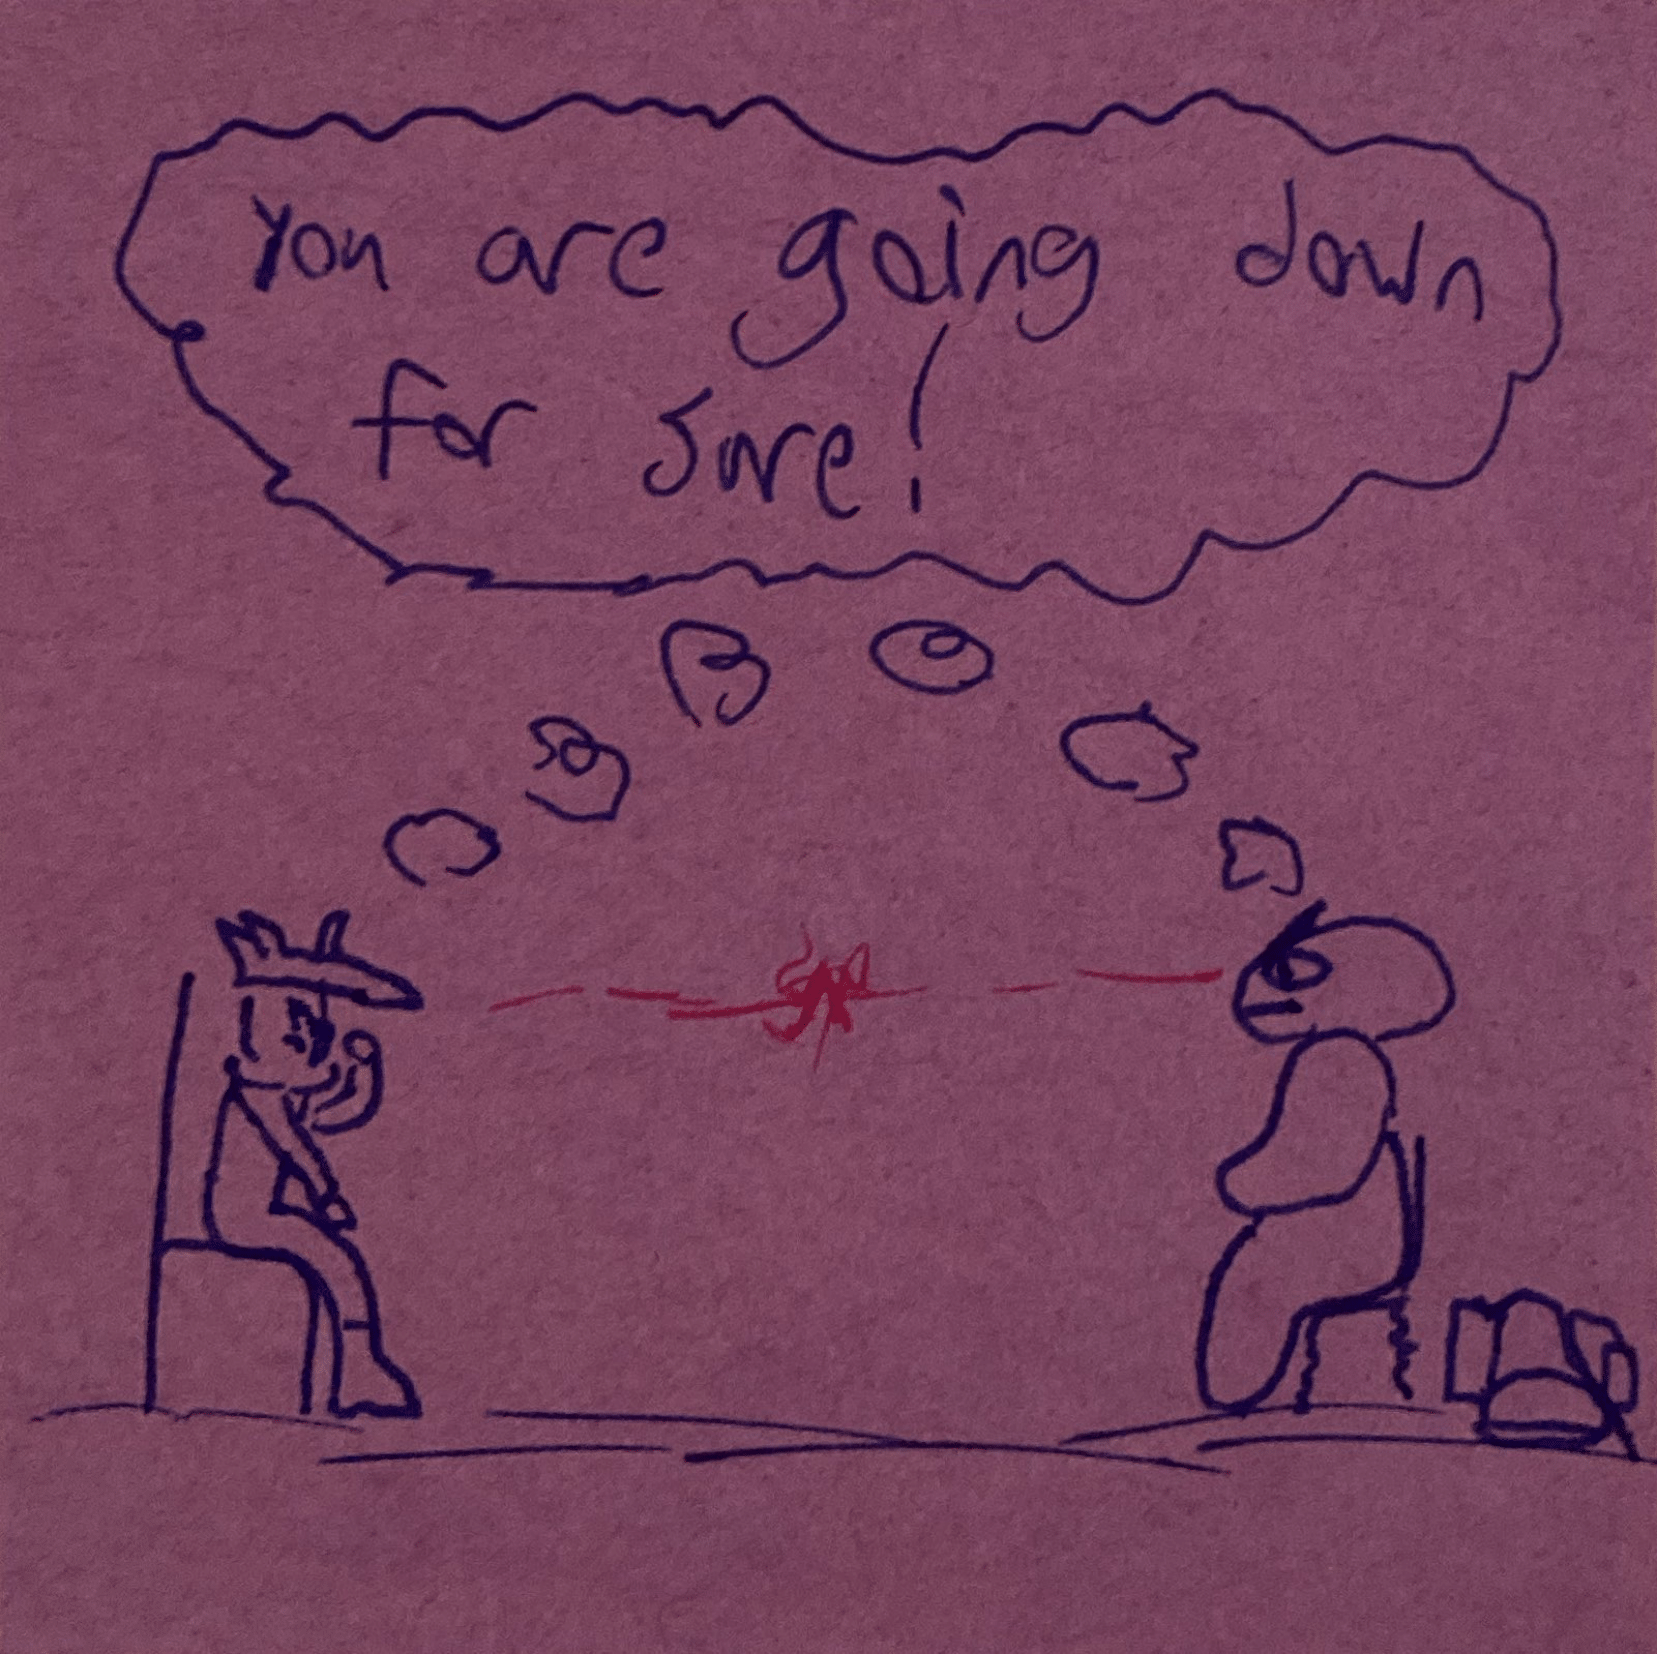 You are going down
for sure!